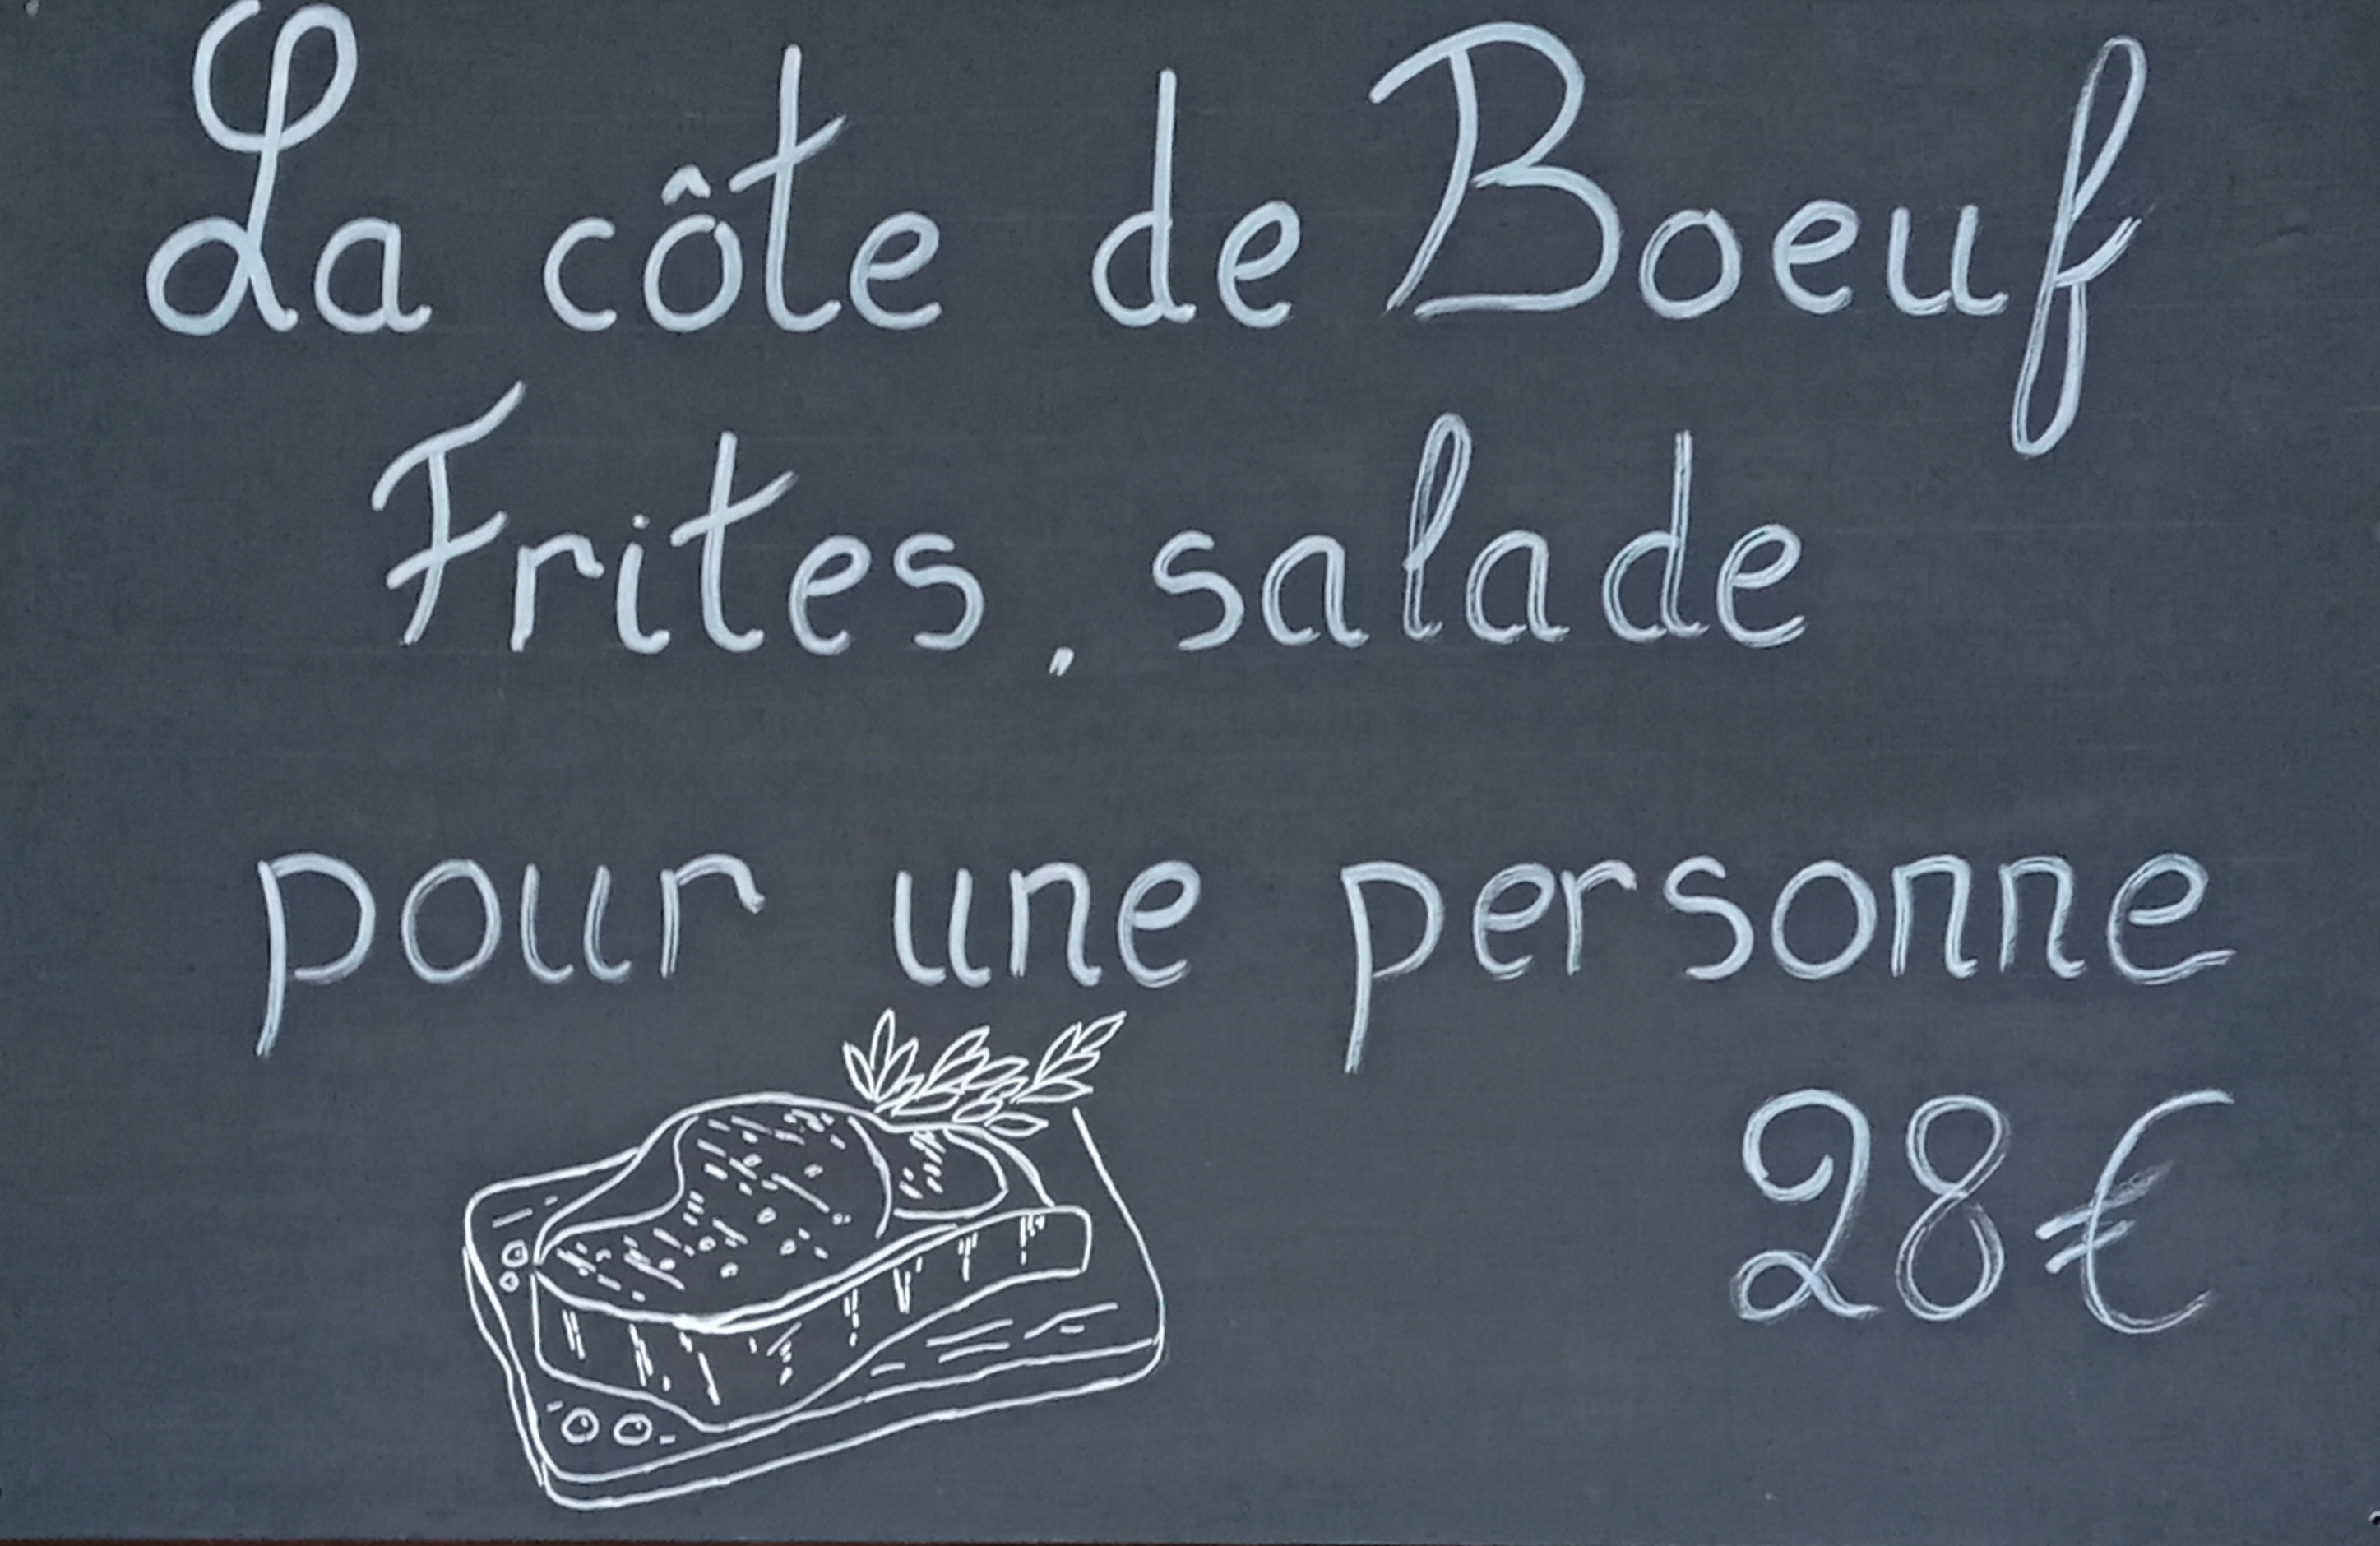 La côte de Boeuf
Frites, salade
pour une personne
28€